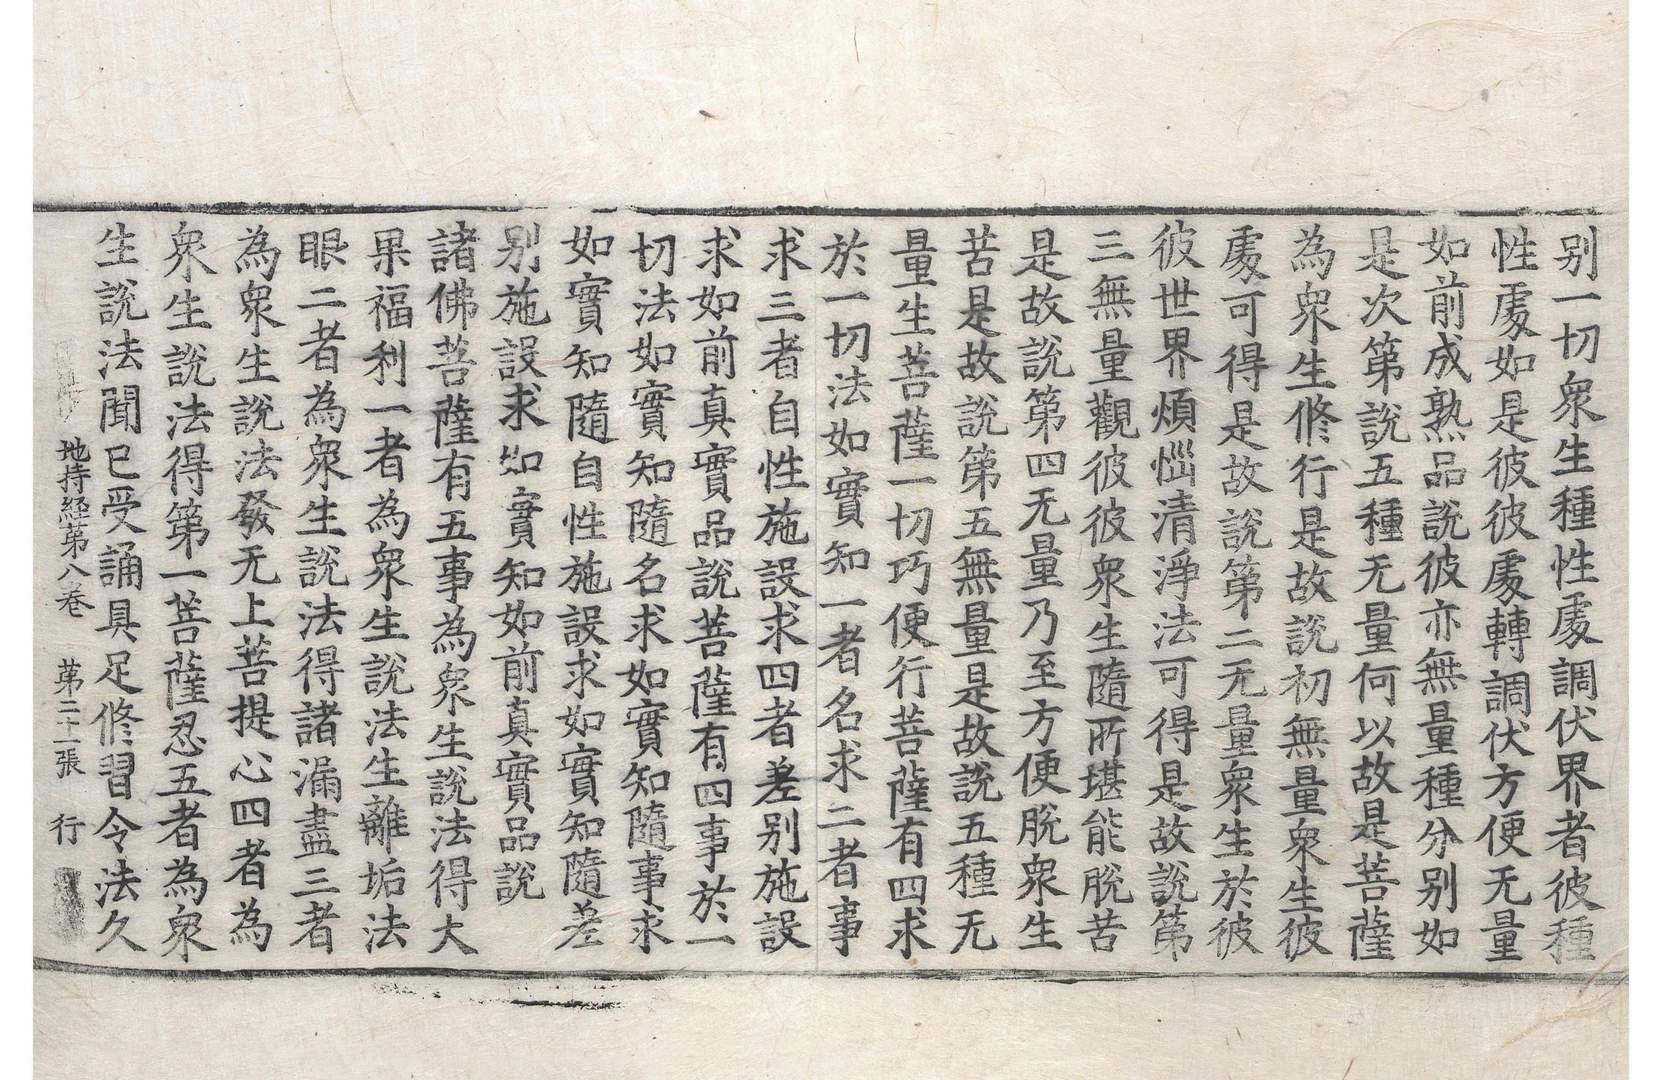 别一切衆生種性處調伏界者彼種
性處如是彼彼處轉調伏方便无量
如前成熟品說彼亦無量種分别如
是次第說五種无量何以故是菩薩
為衆生修行是故說初無量衆生彼
處可得是故說第二无量衆生於彼
彼世界煩惱清淨法可得是故說第
三無量觀彼彼衆生隨所堪能脫苦
是故說第四无量乃至方便脫衆生
苦是故說第五無量是故說五種无
量生菩薩一切巧便行菩薩有四求
於一切法如實知一者名求二者事
求三者自性施設求四者差别施設
求如前真實品說菩薩有四事於一
切法如實知隨名求如實知隨事求
如實知隨自性施設求如實知隨差
别施設求如實知如前真實品說
諸佛菩薩有五事為衆生說法得大
果福利一者為衆生說法生離垢法
眼二者為衆生說法得諸漏盡三者
為衆生說法發无上菩提心四者為
衆生說法得第一菩薩忍五者為衆
生說法聞已受誦具足修習令法久
地持經第八卷 第二十一張 行